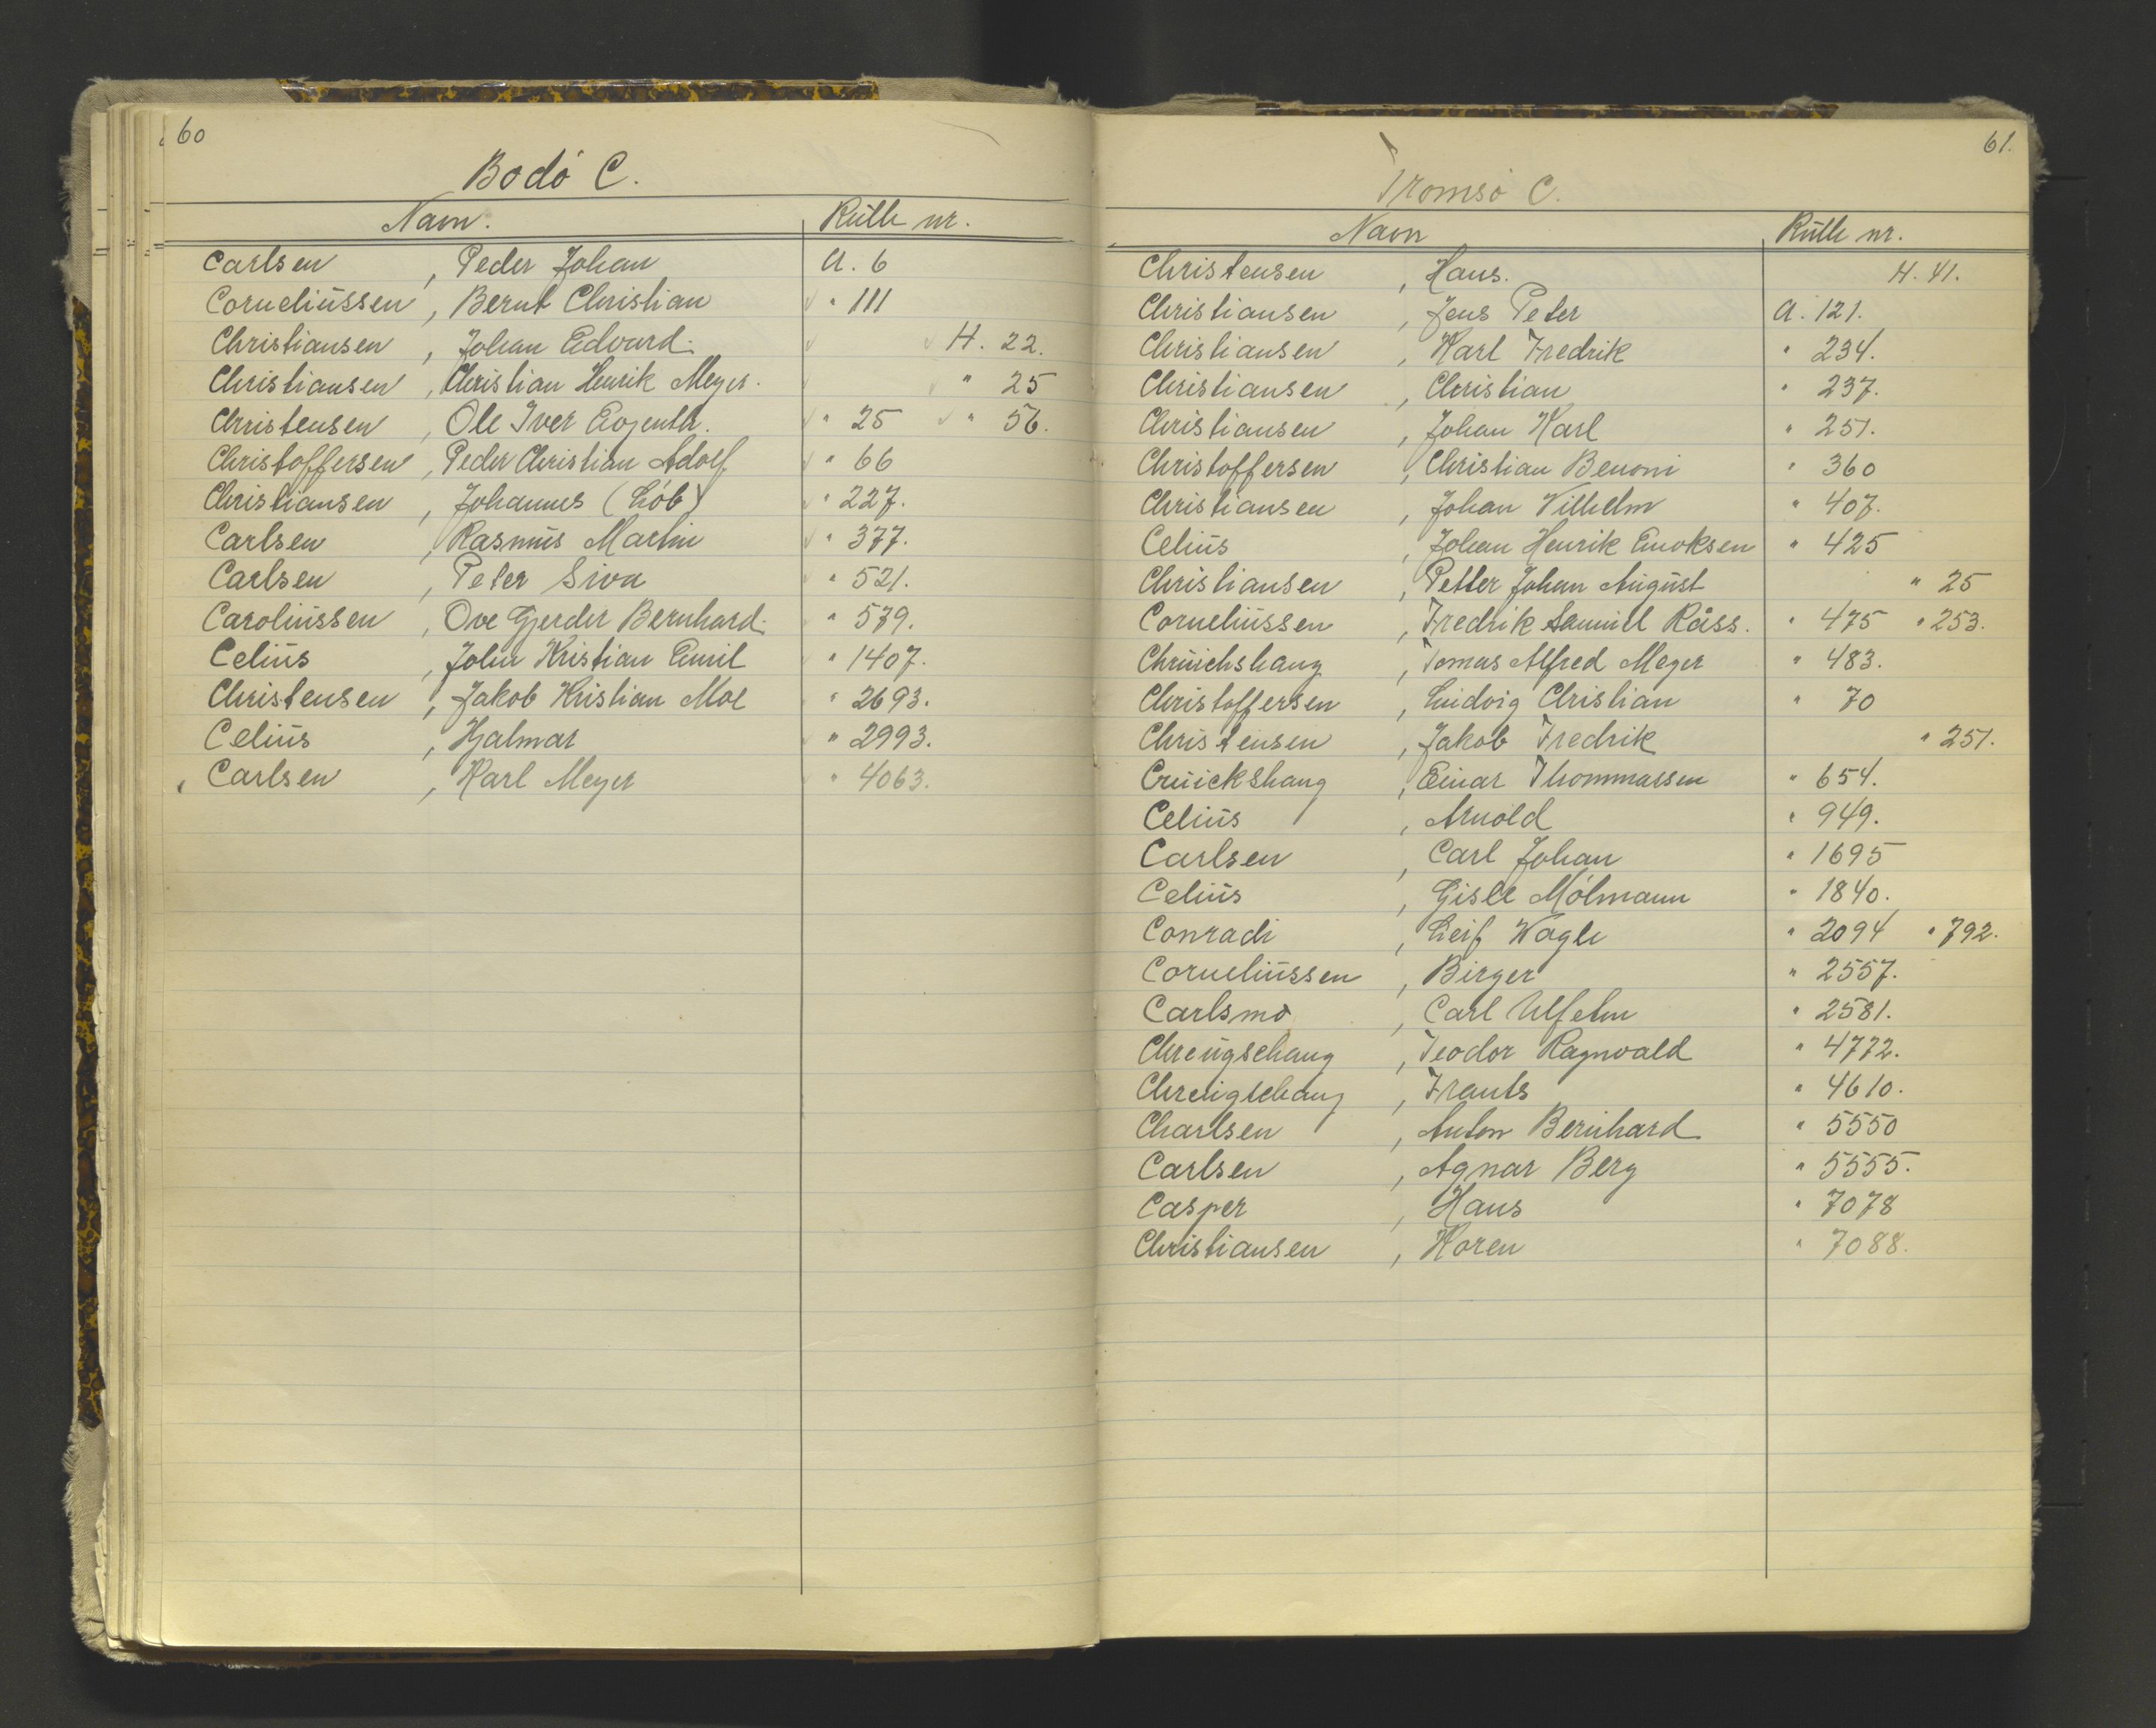 60
Bodó C.
Navn. Rulle nr.
Carlsen , Peder Johan A. 6
Corneliussen , Bernt Christian " 111
Christiansen , Johan Edvard. H. 22.
Christiansen , Christian Henrik Meyer. " 25
Christensen , Ole Iver " 25 " 56.
Christoffersen , Peder Christian Adolf " 66
Christiansen , Johannes (Löb) " 227.
Carlsen , Rasmus Martin " 377.
Carlsen , Peter Siva " 521.
Caroliussen , Ove Gjerder Bernhard. " 579.
Celius , John Kristian Emil " 1407.
Christensen , Jakob Kristian Moe " 2693.
Celius , Hjalmar " 2993.
Carlsen , Karl Meyer " 4063.
61.
Tromsö C.
Navn Rulle nr.
Christensen , Hans. H. 41.
Christiansen , Jens Peter A. 121.
Christiansen , Karl Fredrik " 234.
Christiansen , Christian " 237.
Christiansen , Johan Karl " 251.
Christoffersen , Christian Benoni " 360
Christiansen , Johan Vilhelm " 407.
Celius , Johan Henrik Enoksen " 425
Christiansen , Petter Johan August " 25
Corneliussen , Fredrik Samuel Råss. " 475 " 253.
Chruichshang , Tomas Alfred Meyer " 483.
Christoffersen , Ludvig Christian " 70
Christensen , Jakob Fredrik " 251.
Cruickshang , Einar Thommassen " 654.
Celius , Arnold " 949.
Carlsen , Carl Johan " 1695
Celius , Gisle Mólmann " 1840.
Conradi , Leif Wagle " 2094 " 792.
Corneliussen , Birger " 2557.
Carlsmo , Carl Ulfelm " 2581.
Chreugschang , Teodor Ragnvald " 4772.
Chreigschang , Frants " 4610.
Charlsen , Anton Bernhard " 5550
Carlsen , Agnar Berg " 5555.
Casper , Hans " 7078
Christiansen , Koren " 7088.